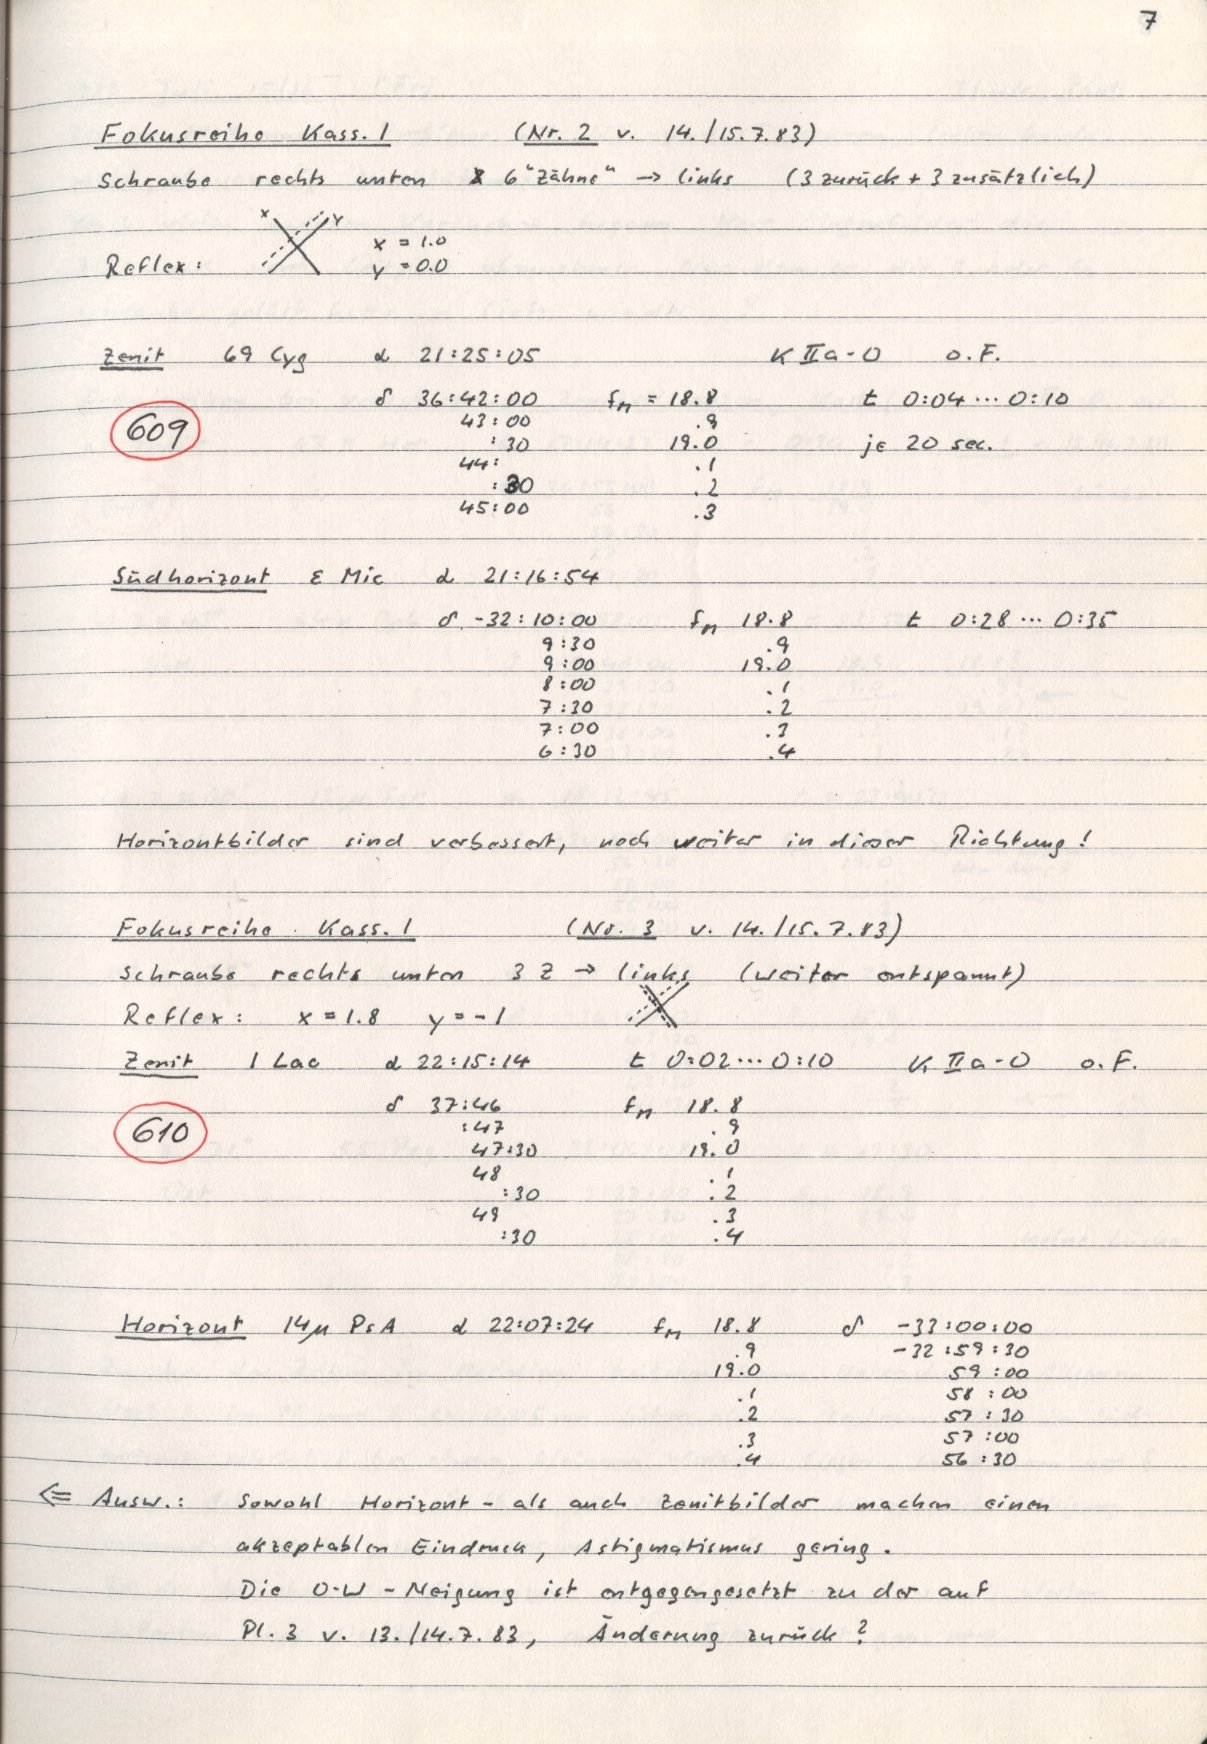 7
Fokusreihe Kass. 1 (Nr. 2 v. 14./15.7.83)
Schraube rechts unten 6 "Zähne" → links (3 zurück + 3 zusätzlich)
x y
x = 1.0
Reflex: y = 0.0
Zenit 69 Cyg α 21:25:05 K IIa-O o.F.
δ 36:42:00 fM = 18.8 t 0:04 ... 0:10
609
43:00 .9
:30 19.0 je 20 sec.
44: .1
:30 .2
45:00 .3
Südhorizont ε Mic α 21:16:54
δ -32:10:00 fM 18.8 t 0:28 ... 0:35
9:30 .9
9:00 19.0
8:00 .1
7:30 .2
7:00 .3
6:30 .4
Horizontbilder sind verbessert, noch weiter in dieser Richtung!
Fokusreihe Kass. 1 (Nr. 3 v. 14./15.7.83)
Schraube rechts unten 3 Z → links (weiter entspannt)
Reflex: x = 1.8 y = -1
Zenit 1 Lac α 22:15:14 t 0:02 ... 0:10 K IIa-O o.F.
δ 37:46 fM 18.8
610
:47 .9
47:30 19.0
48 .1
:30 .2
49 .3
:30 .4
Horizont 14μ PsA α 22:07:24 fM 18.8 δ -33:00:00
.9 -32:59:30
19.0 59:00
.1 58:00
.2 57:30
.3 57:00
.4 56:30
⇐ Ausw.: Sowohl Horizont- als auch Zenitbilder machen einen
akzeptablen Eindruck, Astigmatismus gering.
Die O-W-Neigung ist entgegengesetzt zu der auf
Pl. 3 v. 13./14.7.83, Änderung zurück?